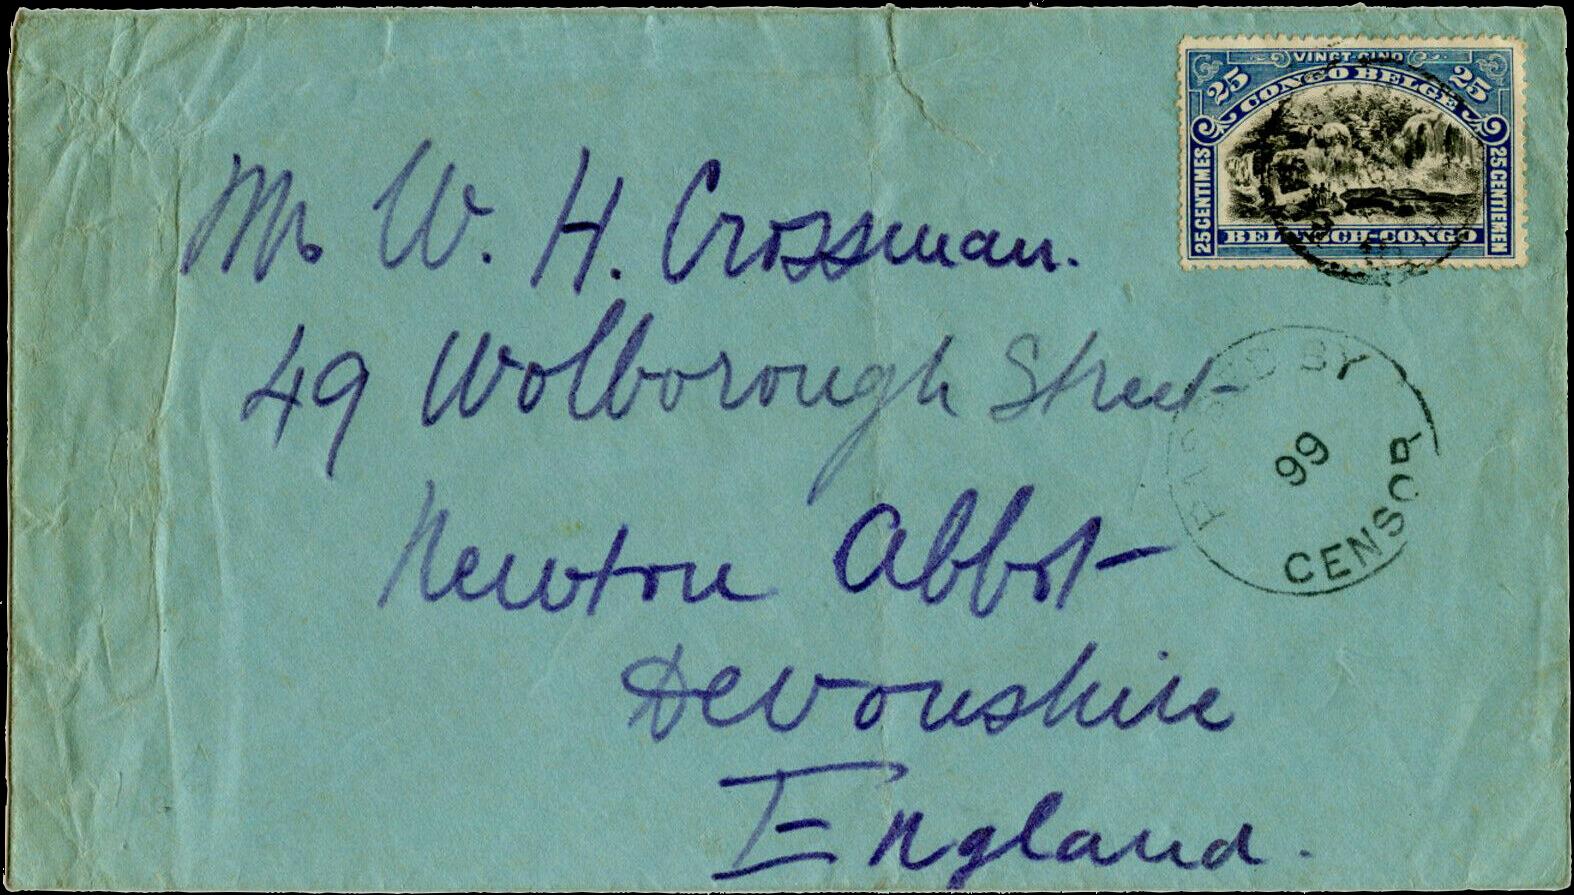 VINGT-CINQ
25 CONGO BELGE 25
25 CENTIMES
25 CENTIEMEN
BELGISCH-CONGO
Mr W. H. Crossman.
49 Wolborough Street
Newton Abbot
Devonshire
England.
PASSED BY
99
CENSOR